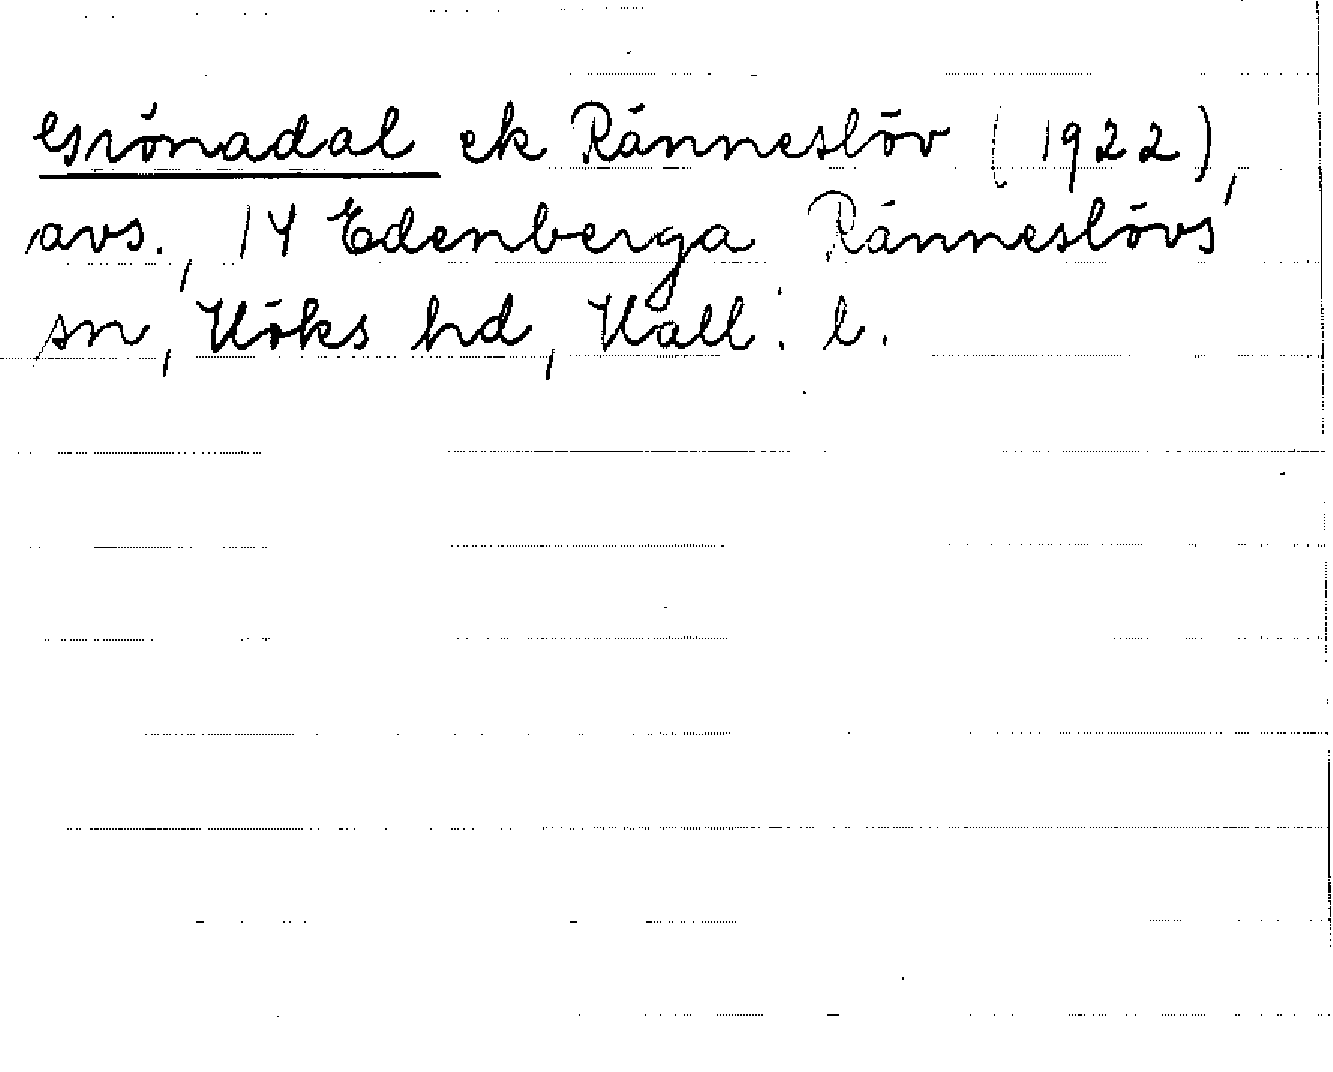 Grönadal ek Ränneslöv (1922),
avs., 14 Edenberga Ränneslövs
sn, Höks hd, Hall. l.